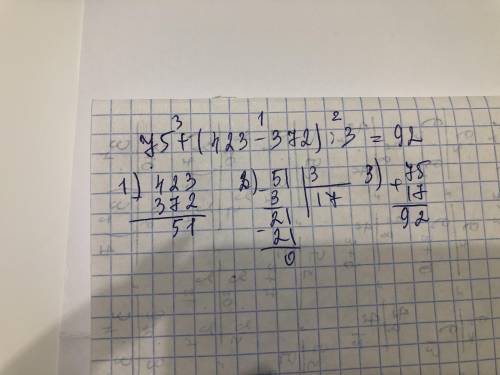 3 1 2
75+(423-372):3=92
1) 423 2) 51 | 3 3) 75
- 372 - 3 | 17 + 17
51 21 92
- 21
0